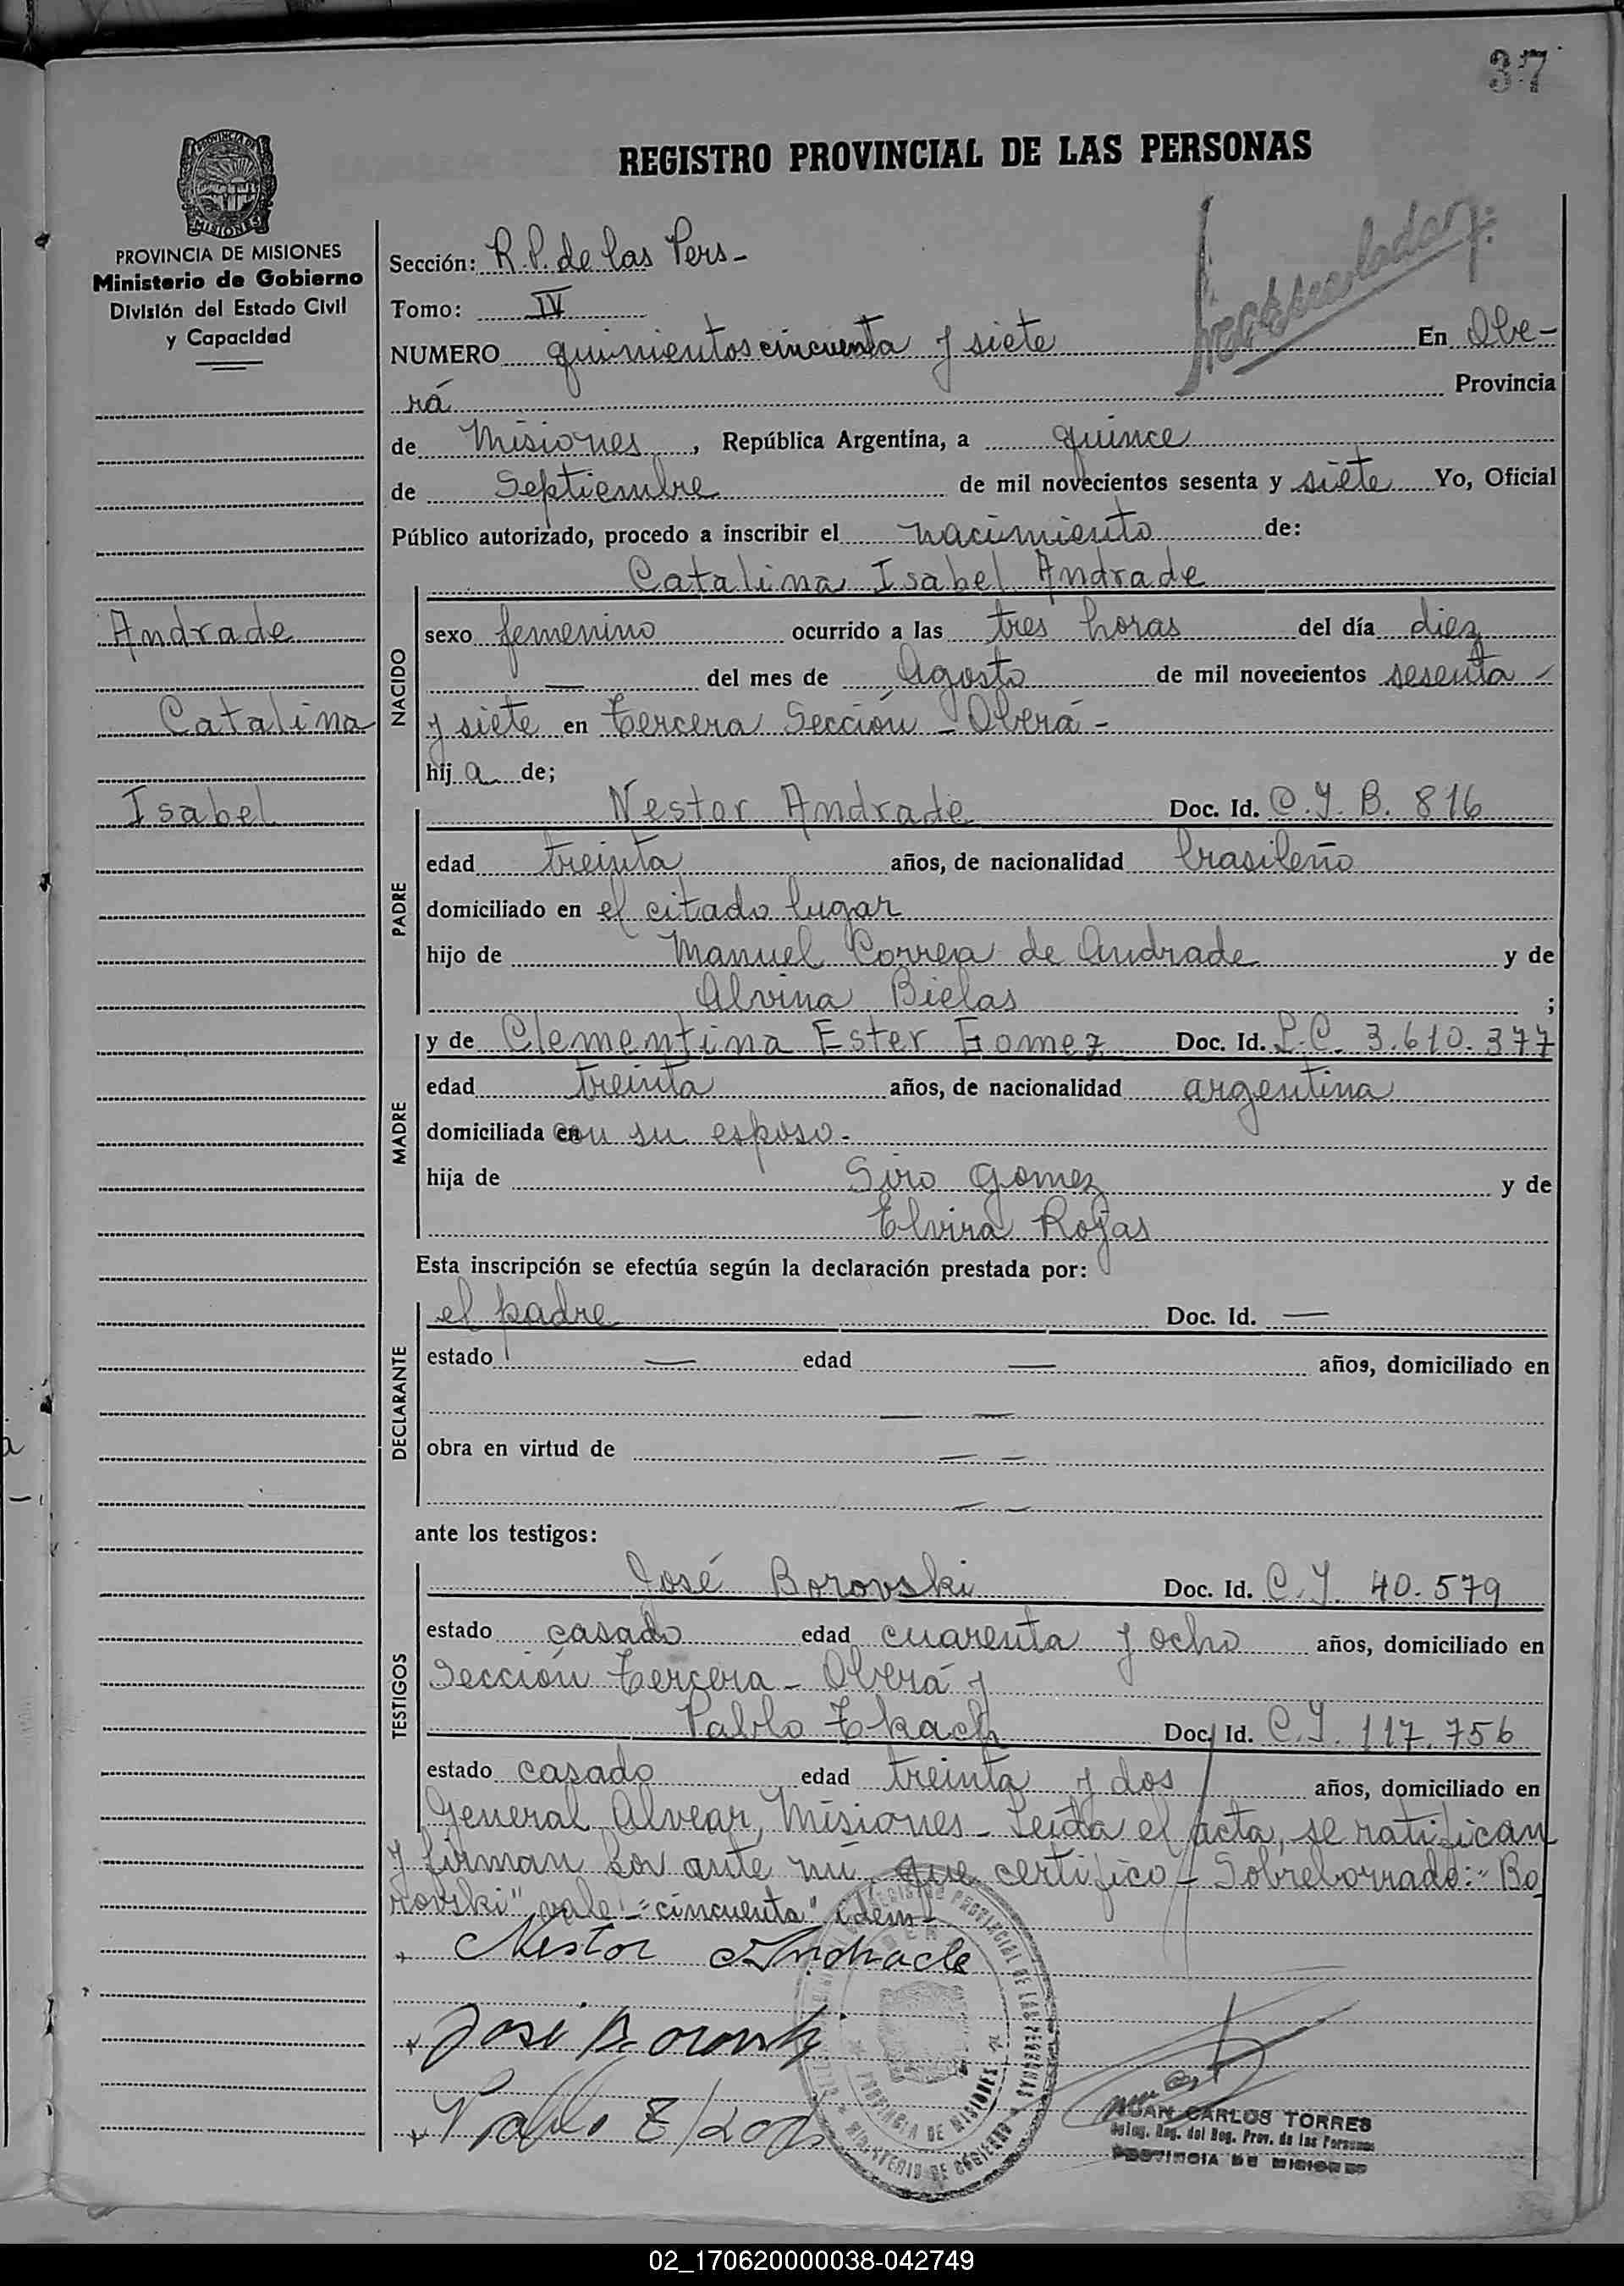 37
REGISTRO PROVINCIAL DE LAS PERSONAS
PROVINCIA DE
MISIONES
PROVINCIA DE MISIONES
Ministerio de Gobierno
División del Estado Civil
y Capacidad
Andrade
Catalina
Isabel
Sección: R.P. de las Pers-
Tomo: IV
NUMERO quinientos cincuenta y siete En Obe-
rá Provincia
de Misiones, República Argentina, a quince
de Septiembre de mil novecientos sesenta y siete Yo, Oficial
Público autorizado, procedo a inscribir el nacimiento de:
Catalina Isabel Andrade
NACIDO
sexo femenino ocurrido a las tres horas del día diez
— del mes de Agosto de mil novecientos sesenta -
y siete en tercera Sección - Oberá -
hij a de;
PADRE
Nestor Andrade Doc. Id. C.I. B. 816
edad treinta años, de nacionalidad brasileño
domiciliado en el citado lugar
hijo de Manuel Correa de Andrade y de
Alvina Bielas ;
MADRE
y de Clementina Ester Gomez Doc. Id. L.C. 3.610.377
edad treinta años, de nacionalidad argentina
domiciliada en con su esposo.
hija de Siro Gomez y de
Elvira Rojas
Esta inscripción se efectúa según la declaración prestada por:
DECLARANTE
el padre Doc. Id. —
estado — edad — años, domiciliado en
— —
obra en virtud de — —
— —
ante los testigos:
TESTIGOS
José Borovski Doc. Id. C.I. 40.579
estado casado edad cuarenta y ocho años, domiciliado en
Sección tercera - Oberá y
Pablo Tkach Doc. Id. C.I. 117.756
estado casado edad treinta y dos años, domiciliado en
General Alvear, Misiones - Leída el acta, se ratifican
y firman por ante mí, que certifico - Sobreborrado: "Bo
rovski" vale - "cincuenta" idem -
Nestor Andrade
José Borovski
Pablo
REGISTRO PROVINCIAL DE LAS PERSONAS
PROVINCIA DE MISIONES
MINISTERIO DE GOBIERNO
JUAN CARLOS TORRES
Reg. del Reg. Prov. de las Personas
PROVINCIA DE MISIONES
02_170620000038-042749